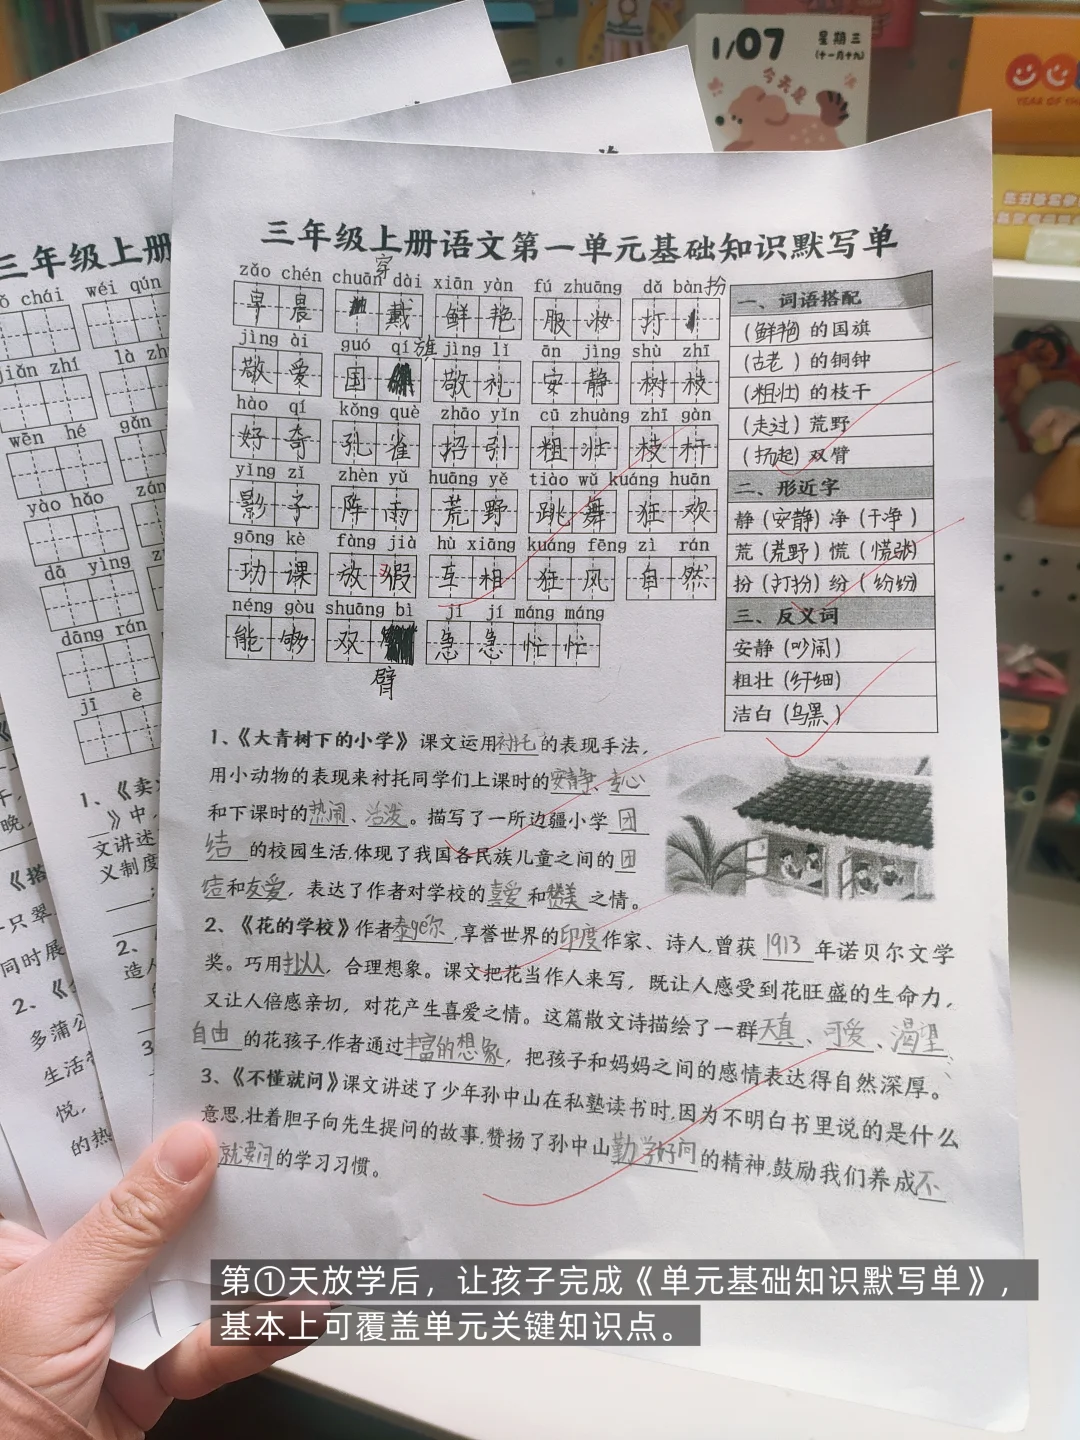 1/07
星期三
(十一月十九)
今天是
YEAR OF TH
三年级上册
三年级上册语文第一单元基础知识默写单
zǎo chén chuān dài xiān yàn fú zhuāng dǎ bàn
穿 扮
早晨 戴 鲜艳 服妆 打
jìng ài guó qí jìng lǐ ān jìng shù zhī
旗
敬爱 国 敬礼 安静 树枝
hào qí kǒng què zhāo yǐn cū zhuàng zhī gàn
好奇 孔雀 招引 粗壮 枝杆
yǐng zǐ zhèn yǔ huāng yě tiào wǔ kuáng huān
影子 阵雨 荒野 跳舞 狂欢
gōng kè fàng jià hù xiāng kuáng fēng zì rán
功课 放假 互相 狂风 自然
néng gòu shuāng bì jí jí máng máng
能够 双 急急忙忙
臂
一、词语搭配
(鲜艳)的国旗
(古老)的铜钟
(粗壮)的枝干
(走过)荒野
(扬起)双臂
二、形近字
静(安静)净(干净)
荒(荒野)慌(慌张)
扮(打扮)纷(纷纷)
三、反义词
安静(吵闹)
粗壮(纤细)
洁白(乌黑)
1、《大青树下的小学》课文运用衬托的表现手法，
用小动物的表现来衬托同学们上课时的安静、专心
和下课时的热闹、活泼。描写了一所边疆小学团
结的校园生活,体现了我国各民族儿童之间的团
结和友爱，表达了作者对学校的喜爱和赞美之情。
2、《花的学校》作者泰戈尔,享誉世界的印度作家、诗人,曾获1913年诺贝尔文学
奖。巧用拟人，合理想象。课文把花当作人来写，既让人感受到花旺盛的生命力，
又让人倍感亲切，对花产生喜爱之情。这篇散文诗描绘了一群天真、可爱、渴望、
自由的花孩子,作者通过丰富的想象，把孩子和妈妈之间的感情表达得自然深厚。
3、《不懂就问》课文讲述了少年孙中山在私塾读书时,因为不明白书里说的是什么
意思,壮着胆子向先生提问的故事,赞扬了孙中山勤学好问的精神,鼓励我们养成不
就要问的学习习惯。
wéi qún
jiǎn zhí
wēn hé
yào hǎo
dā yìng
dāng rán
jī è
1、《卖
》中，
文讲述
义制度
2、
造
3
《搭
一只翠
同时展
2、《
多蒲公
生活
悦，
的热
第①天放学后，让孩子完成《单元基础知识默写单》，
基本上可覆盖单元关键知识点。